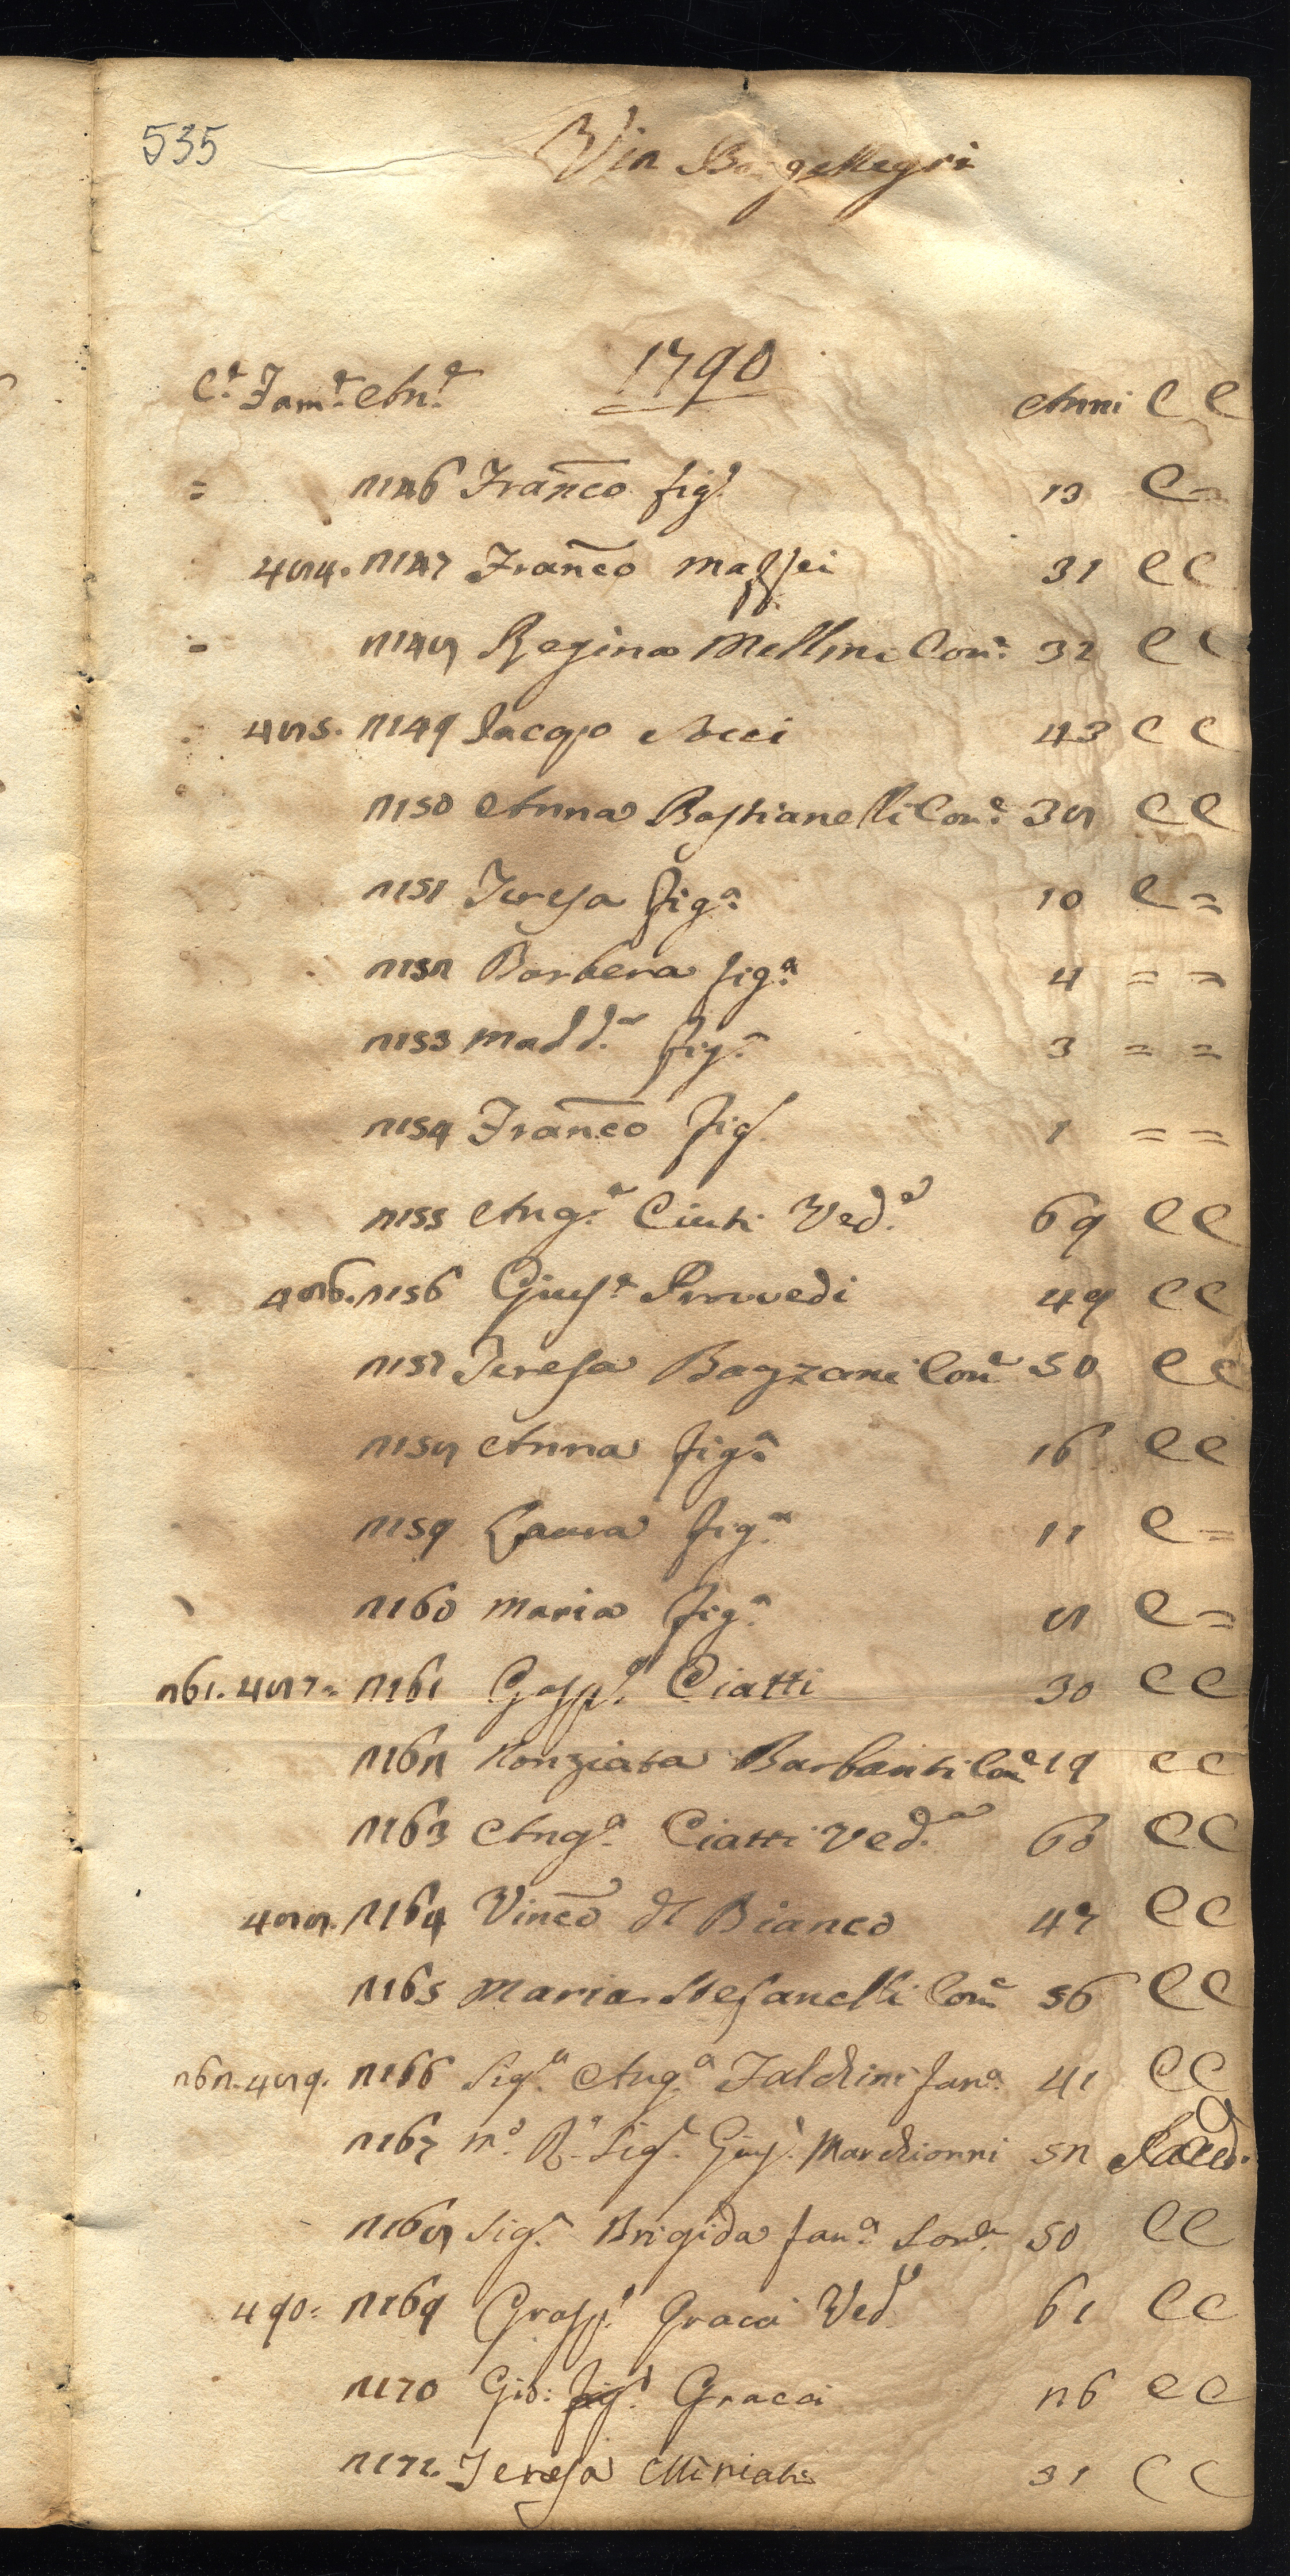 535
Via Borg Allegri
C.e Fam.e An.e 1790 Anni C C
= 2146 Franco fig.o 13 C =
484. 2147 Franco Maffei 31 C C
= 2148 Regina Mellini Con.e 32 C C
485. 2149 Jacopo Acci 43 C C
2150 Anna Bastianelli Con.e 38 C C
2151 Teresa fig.a 10 C =
2152 Barbera fig.a 4 = =
2153 Madd.a fig.a 3 = =
2154 Franco fig.o 1 = =
2155 Ang.a Ciuti Ved.a 69 C C
486. 2156 Gius.e Provvedi 49 C C
2157 Teresa Con.e 50 C C
2158 Anna fig.a 16 C C
2159 Laura fig.a 11 C =
2160 Maria fig.a 8 C =
261. 487= 2161 Gasp.e Ciatti 30 C C
2162 Nonziata Barbanti Con.e 19 C C
2163 Ang.a Ciatti Ved.a 60 C C
488. 2164 Vinco del Bianco 47 C C
2165 Maria Stefanelli Con.e 56 C C
262. 489. 2166 Sig.a Ang.a Falchini fan.a 41 C C
2167 M.o R.o Sig.e Gius.e Marchionni 52 Sacerd.
2168 Sig.a Brigida fan.a Sor.a 50 C C
490= 2169 Gasp.e Gracci Ved.o 61 C C
2170 Gio: fig.o Gracci 26 C C
2171. Teresa Miniati 31 C C